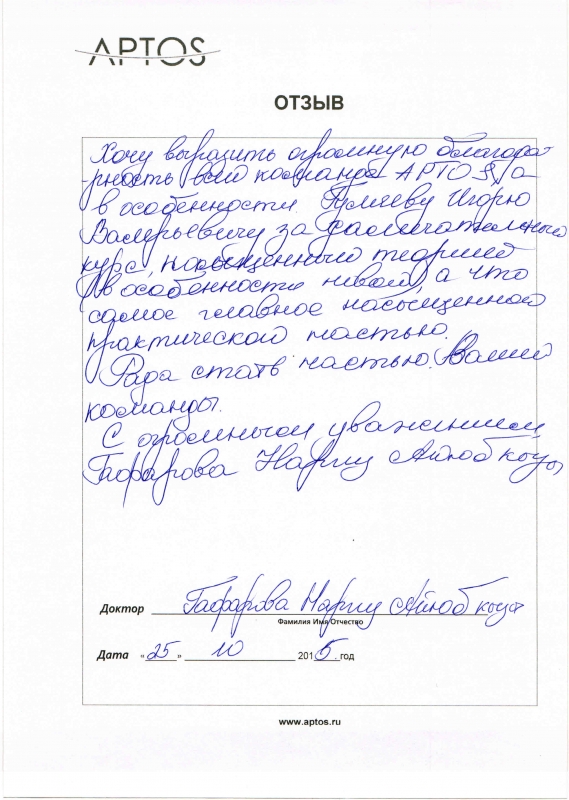 APTOS
ОТЗЫВ
Хочу выразить огромную благодар
-рность всей команде APTOS, а
в особенности Игорю
Валерьевичу за замечательный
курс, насыщенный теорией
(в особенности новой), а что
самое главное насыщенной
практической частью.
Рада стать частью Вашей
команды.
С огромным уважением
Гафарова Наргиз Айюб кызы
Доктор Гафарова Наргиз Айюб кызы
Фамилия Имя Отчество
Дата «25» 10 2015.год
www.aptos.ru